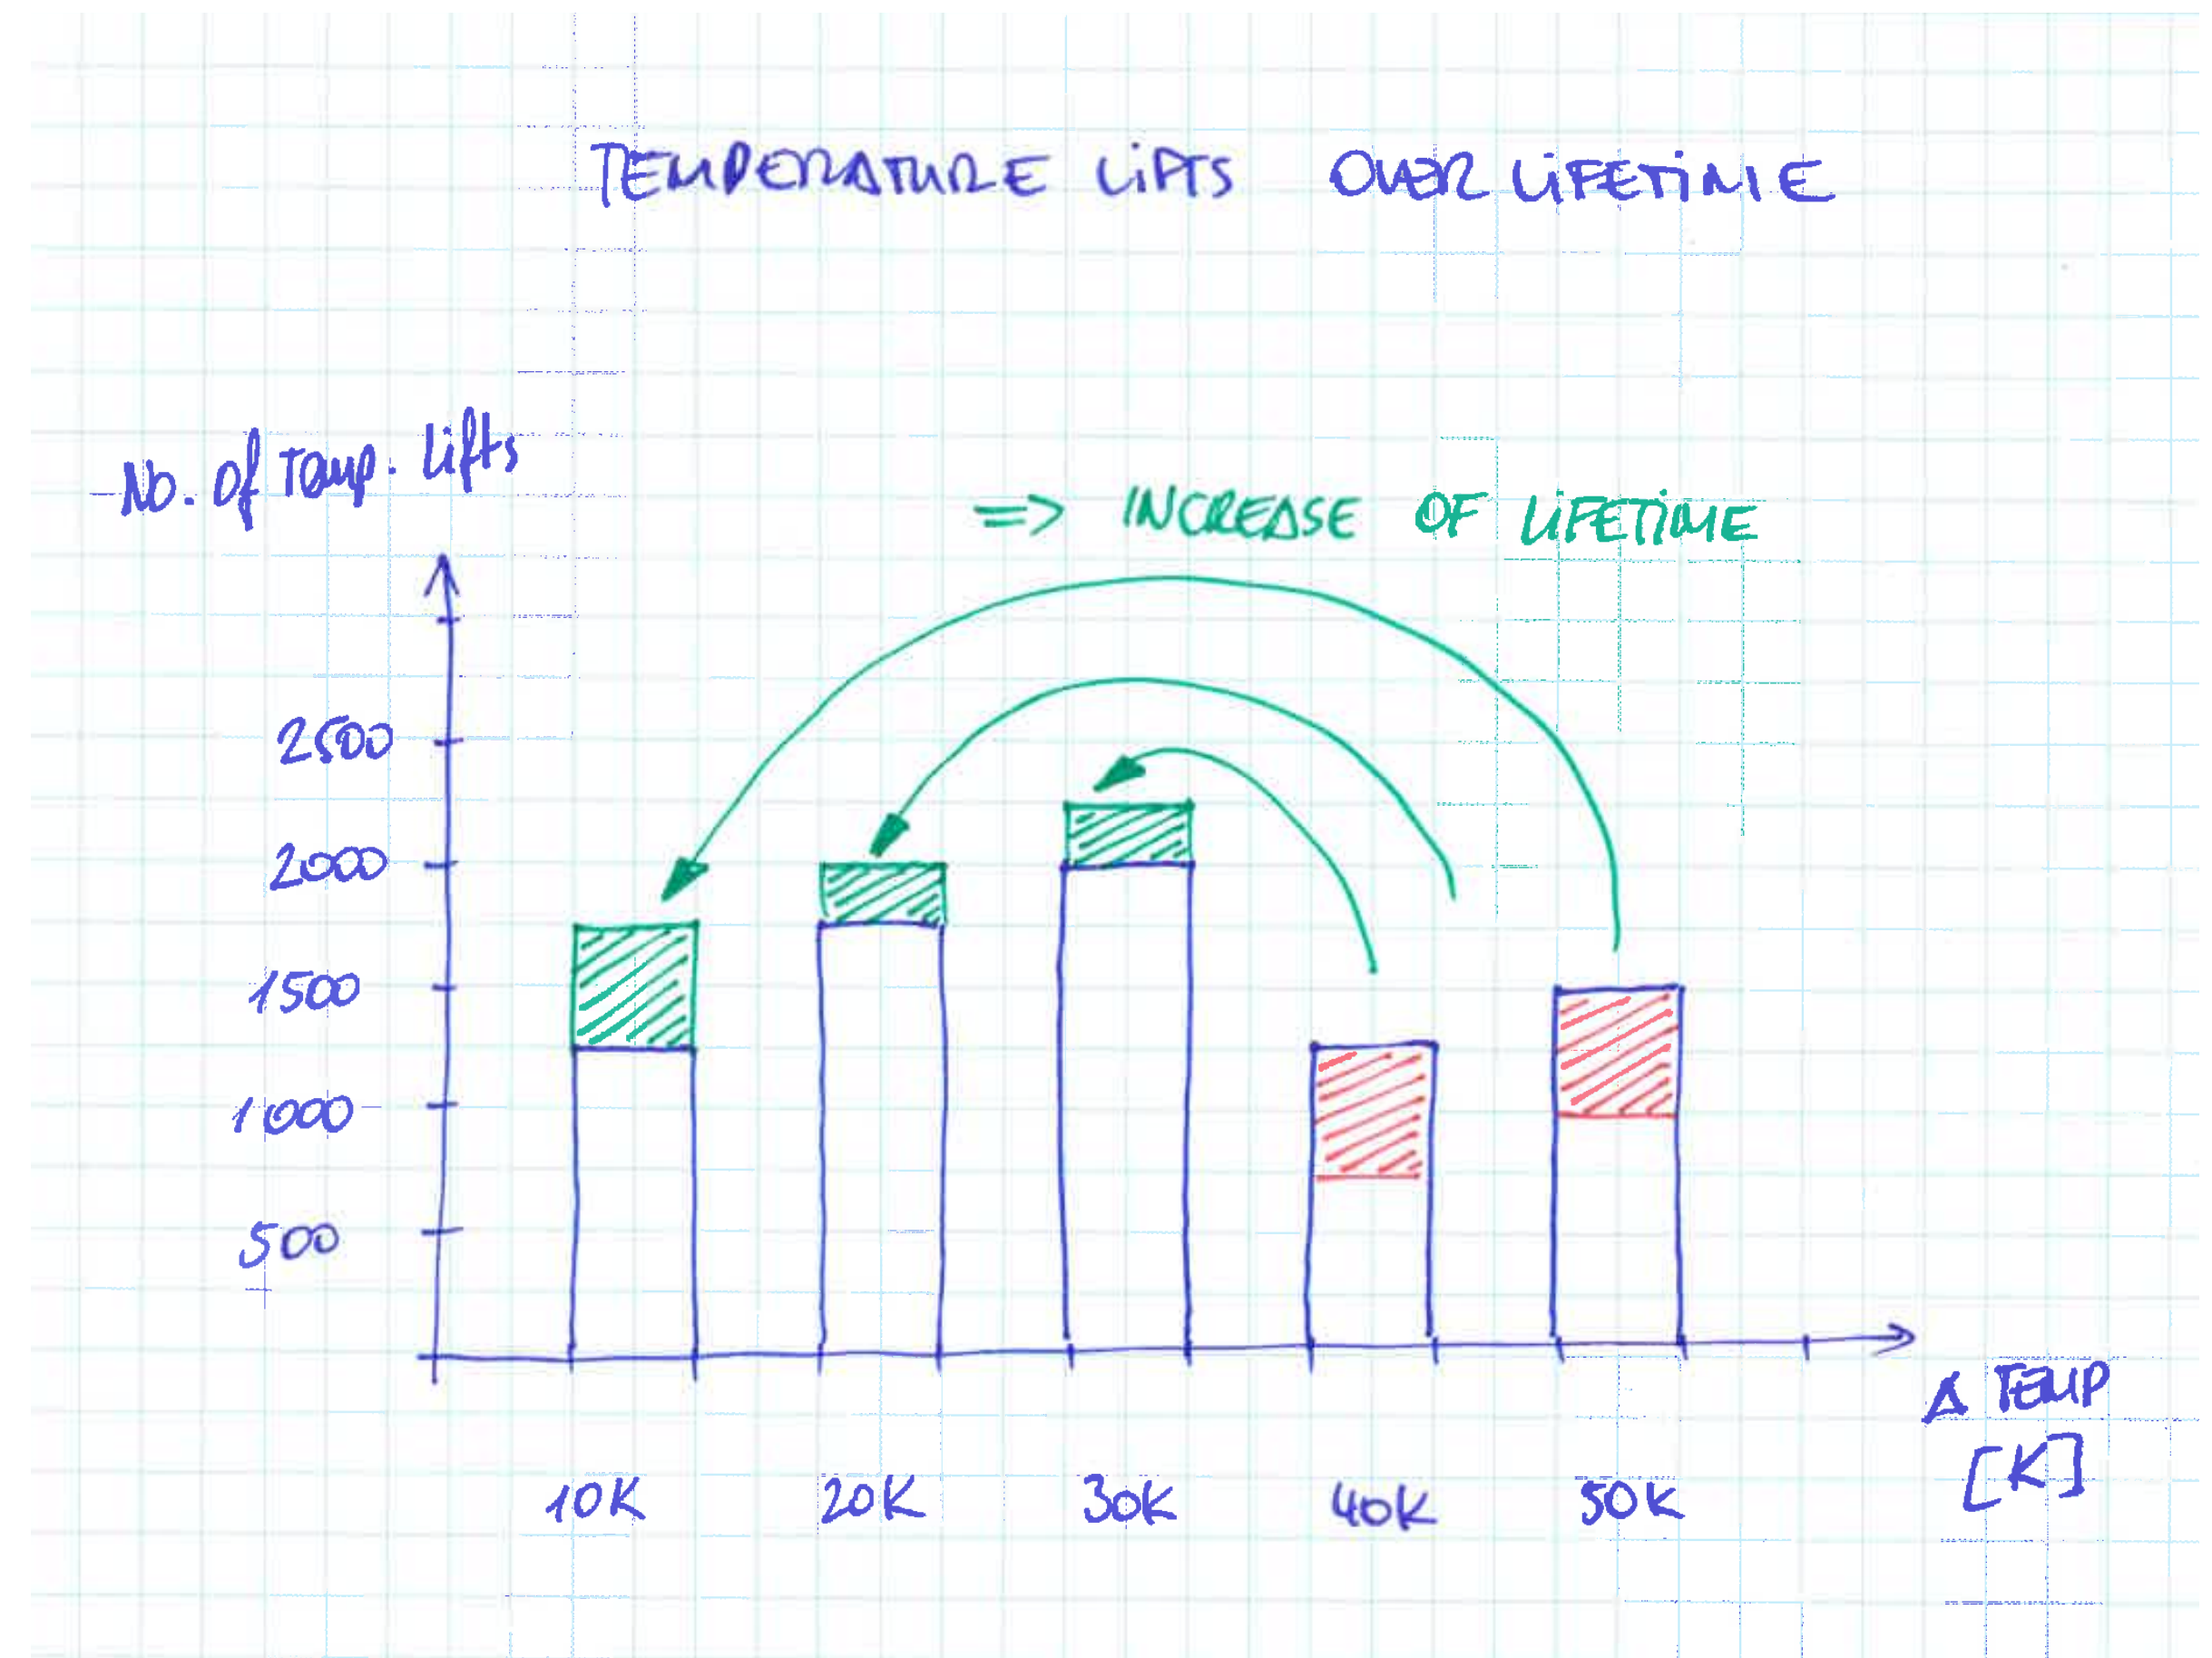 TEMPERATURE LIFTS OVER LIFETIME
No. of Temp. Lifts
=> INCREASE OF LIFETIME
2500
2000
1500
1000
500
10K 20K 30K 40K 50K
Δ TEMP
[K]